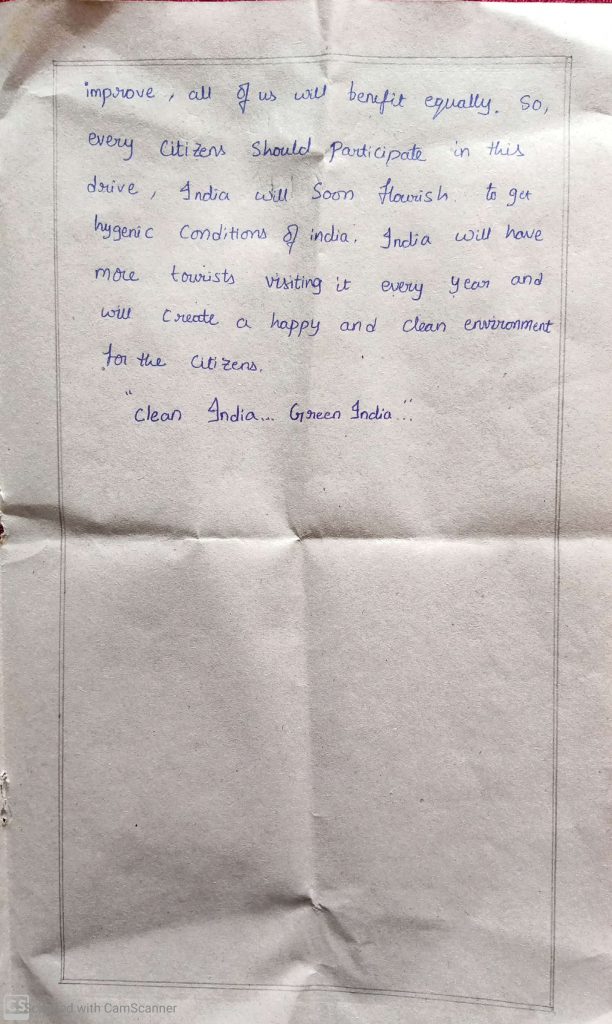 improve, all of us will benefit equally. So,
every Citizens Should Participate in this
drive, India will Soon flourish. to get
hygenic Conditions of india. India will have
more tourists visiting it every year and
will Create a happy and clean environment
for the Citizens.
"clean India... Green India..."
CS Scanned with CamScanner